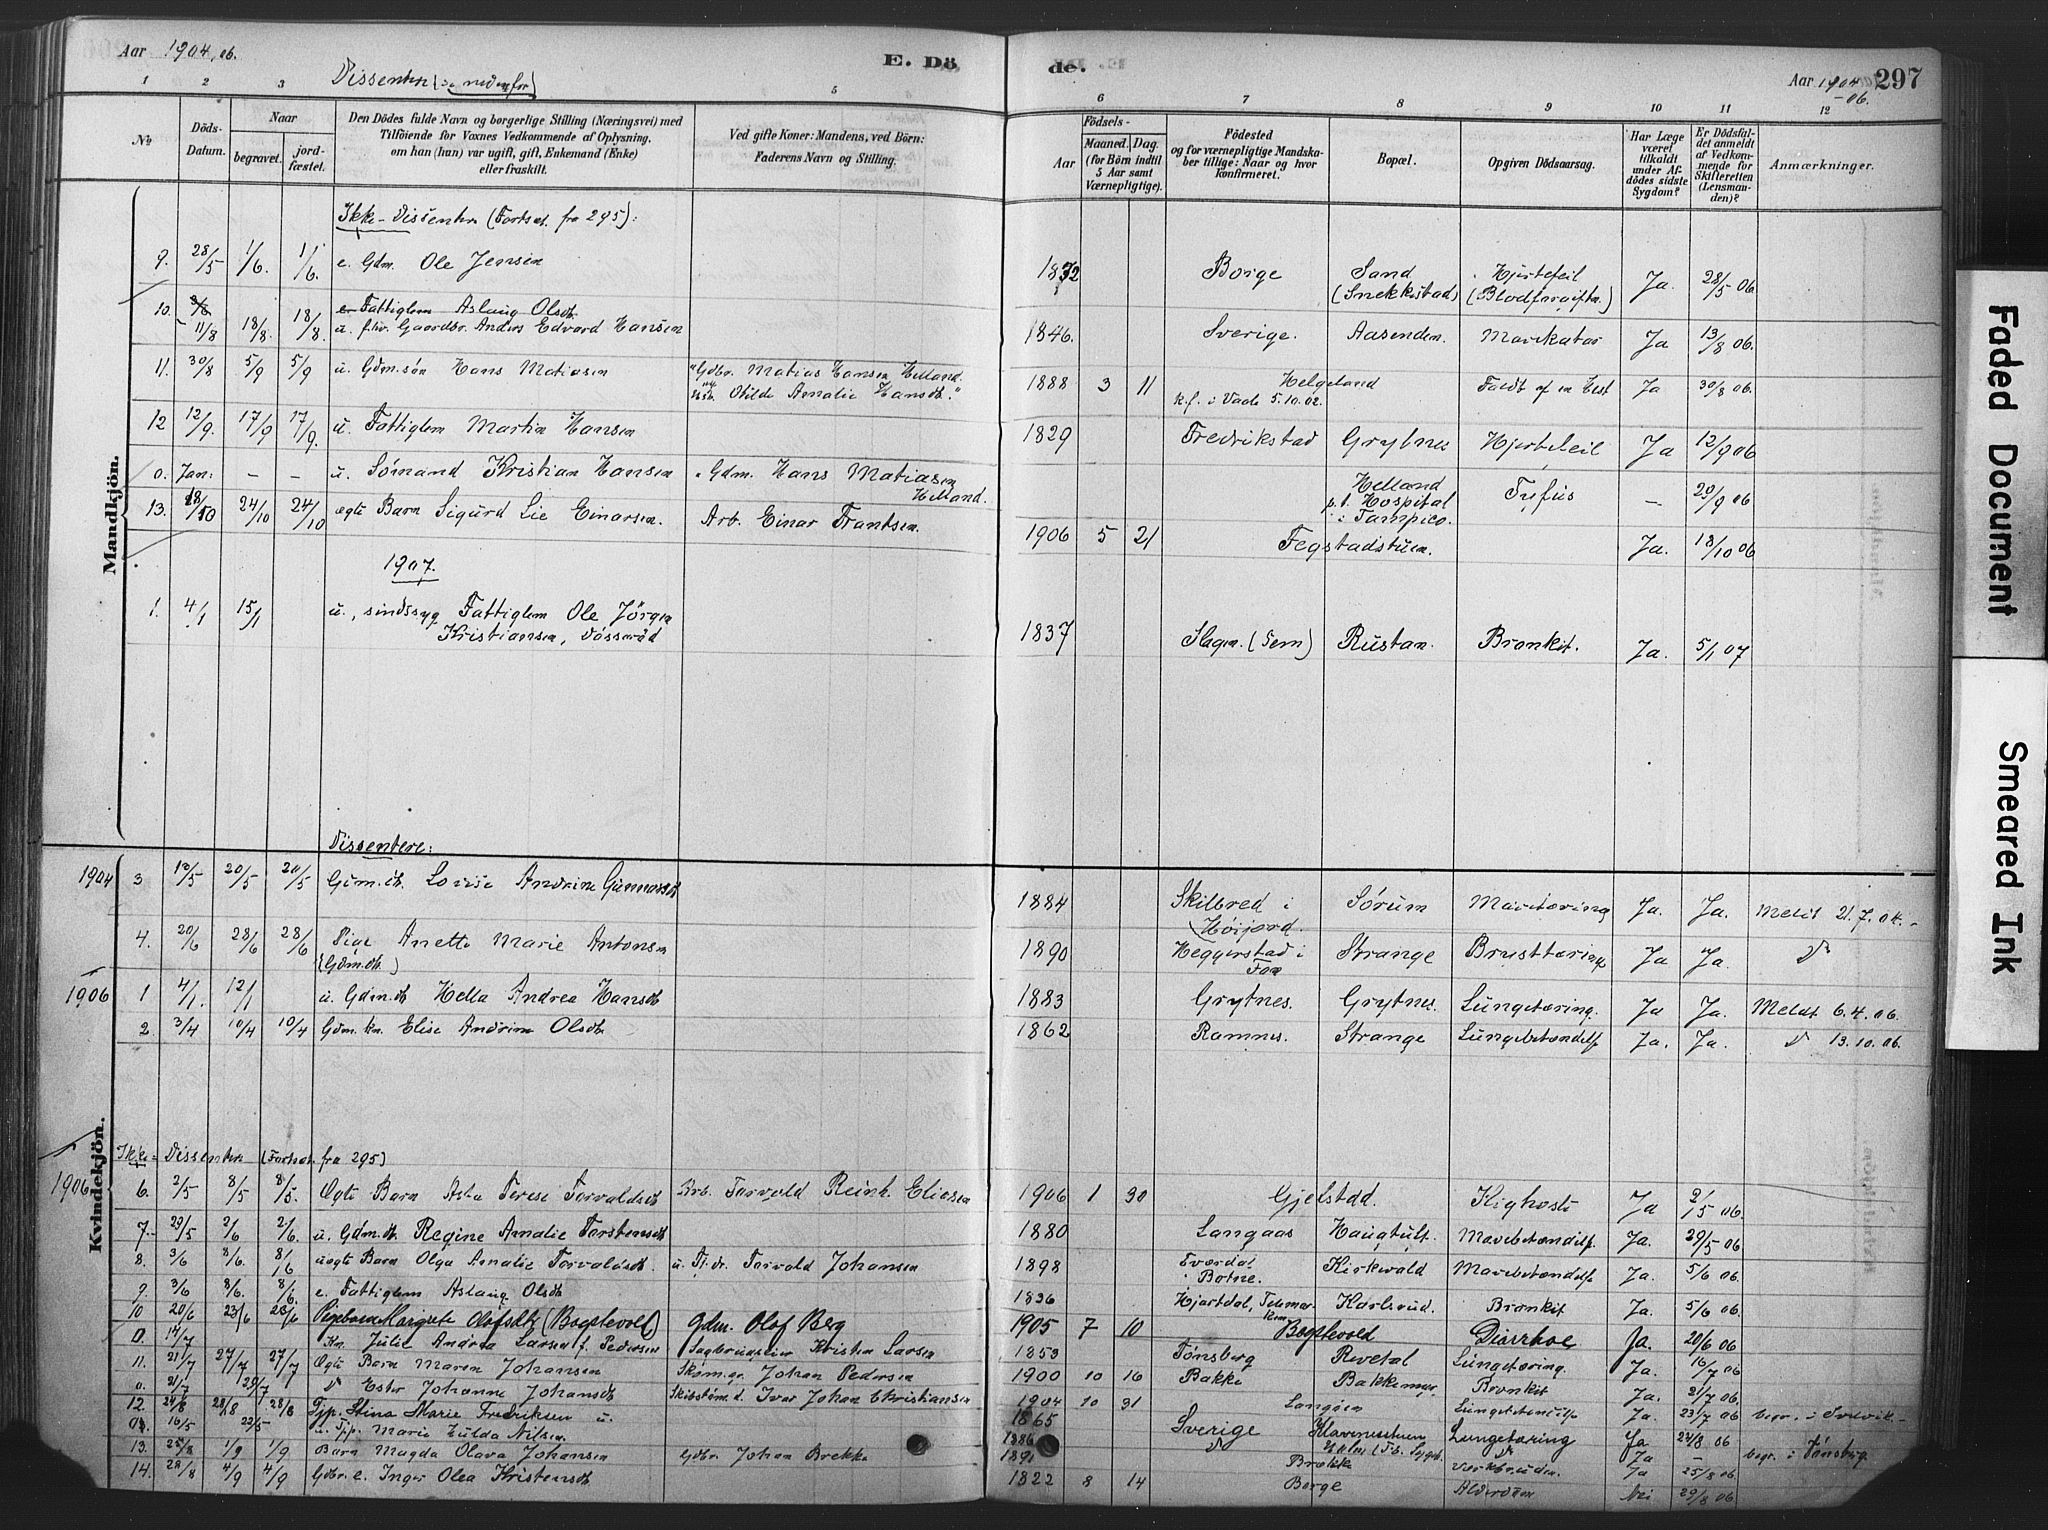 Aar 1904, 06.
E. Dö de.
Aar 1904 -06.
297
Dissentere (se nedenfor)
1 2 3 5 6 7 8 9 10 11 12
No
Döds-Datum.
Naar
begravet.
jord-fæstet.
Den Dödes fulde Navn og borgerlige Stilling (Næringsvei) med
Tilföiende for Voxnes Vedkommende af Oplysning,
om han (hun) var ugift, gift, Enkemand (Enke)
eller fraskilt.
Ved gifte Koner: Mandens, ved Börn:
Faderens Navn og Stilling.
Födsels-
Aar
Maaned. Dag.
(for Börn indtil
5 Aar samt
Værnepligtige).
Födested
og for værnepligtige Mandska-
ber tillige: Naar og hvor
konfirmeret.
Bopæl.
Opgiven Dödsaarsag.
Har Læge
været
tilkaldt
under Af-
dödes sidste
Sygdom?
Er Dödsfal-
det anmeldt
af Vedkom-
mende for
Skifteretten
(Lensman-
den)?
Anmærkninger.
Mandkjön.
Ikke-Dissentere (Fortsæt. fra 295):
9. 28/5 1/6. 1/6. e. Gdm. Ole Jensen 1832 Borge Sand (Snekkestad) Hjertefeil (Blodforgiftn.) Ja. 28/5 06
10. e. Fattiglem Aslaug Olsdt.
11/8 18/8. 18/8. u. fhv. Gaardbr. Anders Edvard Hansen 1846. Sverige. Aasenden. Mavekatar Ja 13/8 06.
11. 30/8 5/9 5/9 u. Gdm.søn Hans Matiasen Gdbr. Matias Hansen Helland. Otilde Amalie Hansdt. 1888 3 11 Helgeland k.f. i Vaale 5.10.02. Faldt af en Hest Ja 30/8 06.
12 12/9. 17/9 17/9. u. Fattiglem Martin Hansen 1829 Fredrikstad Grytnes Hjertefeil Ja 12/9 06
0. Jan: - - u. Sømand Kristian Hansen Gdm. Hans Matiasen Helland. Helland p.t. Hospital i Tampico. Tyfus - 20/9 06
13. 18/10 24/10 24/10 ægte Barn Sigurd Lie Einarsen. Arb. Einar Frantsen. 1906 5 21 Fegstadstuen. Ja. 18/10 06
1907.
1. 4/1 15/1 u., sindssyg Fattiglem Ole Jörgen Kristiansen, Vasserød 1837 Slagen. (Sem) Rustan. Bronkit. Ja. 5/1 07
Kvindekjön.
Dissentere:
1904 3 12/5 20/5 20/5 Gdm.dt. Lovise Andrine Gunnarsdt 1884 Skilbred i Høijord. Sørum Mavetæring Ja. Ja. Meldt 21.7.04.
4. 20/6 28/6 28/6 Pige Anette Marie Antonsen (Gdm.dt.) 1890 Heggerstad i Fon Strange Brysttæring Ja Ja.
1906 1 4/1. 12/1 u. Gdm.dt Hella Andrea Hansdt 1883 Grytnes. Grytnes. Lungetæring. Ja Ja. Meldt 6.4.06.
2 3/4 10/4 10/4 Gdm.kn. Elise Andrine Olsdt. 1862 Ramnes. Strange Lungebetændelse Ja. Ja. 13.10.06.
Ikke-Dissentere (Fortsæt. fra 295)
1906 6. 2/5 8/5 8/5. Ægte Barn Asta Terese Torvaldsdt Arb. Torvald Reinh. Eliasen 1906 1 30 Gjelstad. Kighoste Ja 2/5 06.
7. 29/5 2/6 2/6. u. Gdm.dt. Regine Amalie Torstensdt 1880 Langaas Haugtuft. Mavebetændelse. Ja. 29/5 06
8. 3/6 8/6. 8/6 uægte Barn Olga Amalie Torvaldsdt. u. Tj.dr. Torvald Johansen 1898 Sværdal i Botne. Kirkevald Mavebetændelse Ja. 5/6 06
9 3/6 8/6. 8/6. e. Fattiglem Aslaug Olsdt 1836 Hjartdal, Telemarken Karlsrud. Bronkit Ja. 5/6 06.
10 20/6 23/6 23/6 Pigebarn Margrete Olafsdt (Bogstevold) Gdm. Olof Berg 1905 7 10 Bogstevold Diarrhoe Ja. 20/6 06
0. 14/7 Kn. Julie Andrea Larsen f. Pedersen Sagbrugseier Kristen Larsen 1853 Tønsberg Revetal Lungetæring. Ja. 16/7 06
11. 21/7 27/7 27/7 Ægte Barn Maren Johansen Skom. Johan Pedersen 1900 10 16 Bakke Bronkit Ja. 21/7 06.
0. 21/7 29/7 Ester Johanne Johansdt Skibstømd. Ivar Johan Christiansen 1904 10 31 Langøen Ja. 23/7 06 begr. i Svelvik
12. 24/8 28/8 28/8 Tjp. Stina Marie Fredriksen 1865 Sverige Lungetæring Ja 24/8 06
0. 16/5 22/5 u. Tjp. Marie Hulda Nilsen 1886 Ja - begr. i Tønsberg
13. 25/8 1/9 1/9 Barn Magda Olava Johansen Gdbr. Johan Brekke 1891 Brekke Ja 25/8 06
14. 29/8 4/9 4/9 Gdbr.e. Inger Olea Kristensdt 1822 8 14 Borge Alderdom Nei 29/8 06
Faded Document
Smeared Ink